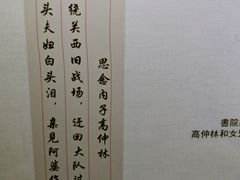 思念内子高仲林
绕关西旧战场，迂回大队过
头夫妇白头泪，亲见阿婆作
書院
高仲林和女兒